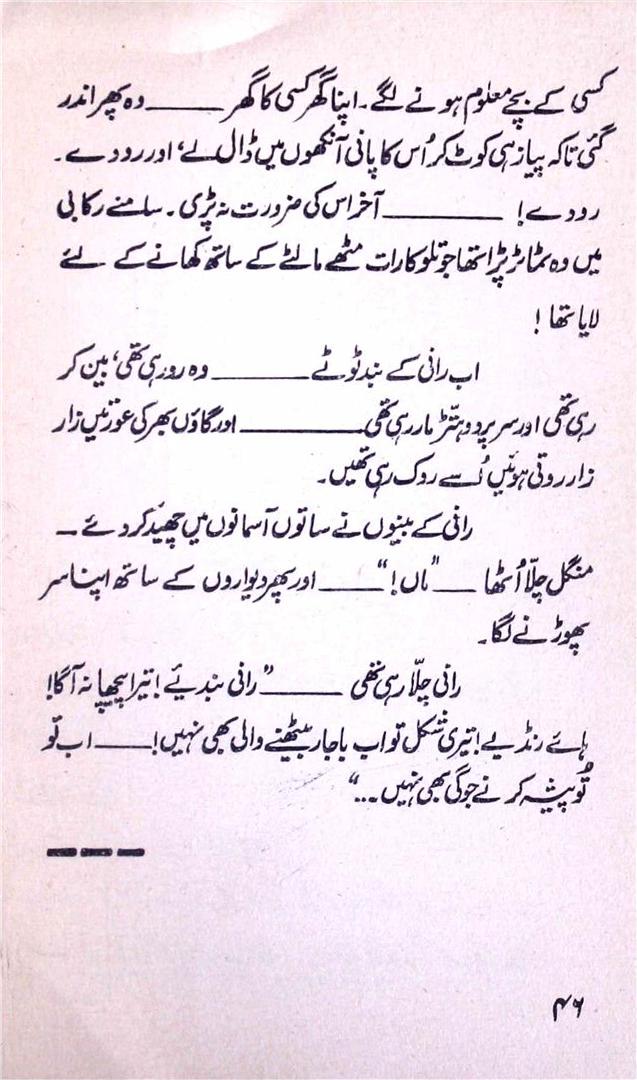 کسی کے بچے معلوم ہونے لگے۔ اپنا گھر کسی کا گھر ــــــــ وہ پھر اندر
گئی تاکہ پیاز ہی کوٹ کر اُس کا پانی آنکھوں میں ڈال لے، اور رو دے۔
رو دے! ــــــــ آخر اس کی ضرورت نہ پڑی۔ سامنے رکابی
میں وہ ٹماٹر پڑا تھا جو تلوکا رات مٹھے مالٹے کے ساتھ کھانے کے لئے
لایا تھا!
اب رانی کے بند ٹوٹے ــــــــ وہ رو رہی تھی، بین کر
رہی تھی اور سر پر دو ہتّڑ مار رہی تھی ــــــــ اور گاؤں بھر کی عورتیں زار
زار روتی ہوئیں اُسے روک رہی تھیں۔
رانی کے بینوں نے ساتوں آسمانوں میں چھید کر دئے ــ
منگل چلّا اُٹھا ــــــ "ماں!" ــــــ اور پھر دیواروں کے ساتھ اپنا سر
پھوڑنے لگا۔
رانی چلّا رہی تھی ــــــــ "رانی بندیئے! تیرا پیچھا نہ آگا!
ہائے رنڈیے! تیری شکل تو اب باجار بیٹھنے والی بھی نہیں! ــــــ اب تو
تُو پیشہ کرنے جوگی بھی نہیں ..."
ــ ــ ــ
۴۶